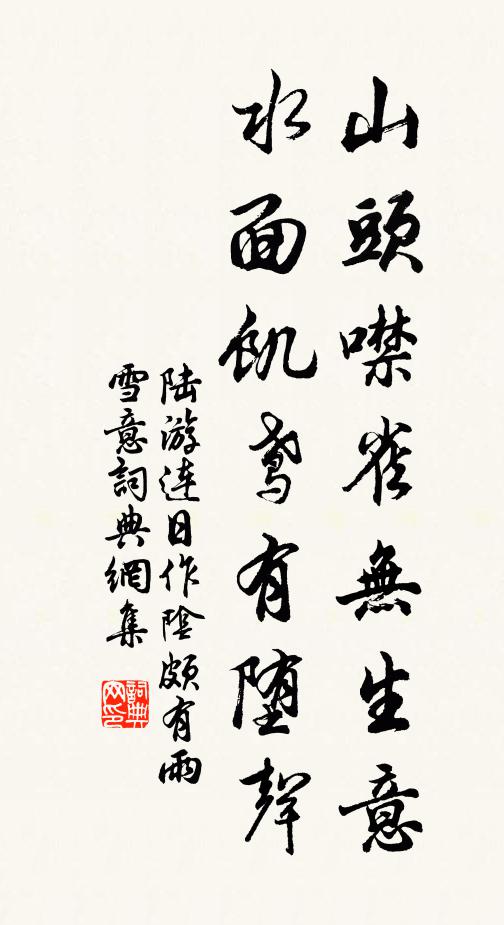 山頭噤雀無生意
水面飢鳶有堕聲
陆游连日作陰頗有雨
雪意詞典網集
詞典网印